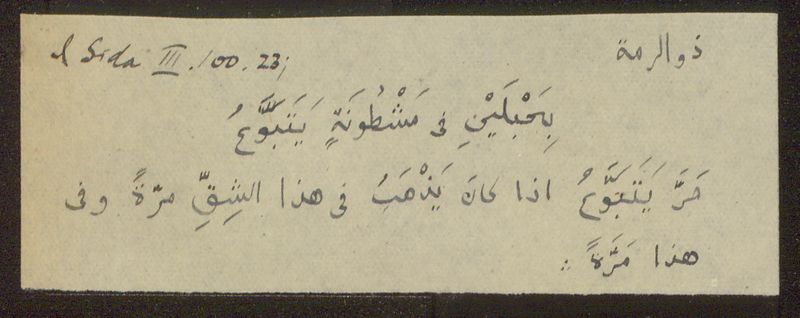 ذو الرمة
I Sida III. 100. 23;
بِحَبْلَيْنِ فى مَشْطُونَةٍ يَتَبَوَّعُ
مَرَّ يَتَبَوَّعُ اذا كانَ يَذْهَبُ فى هذا الشِقِّ مرّةً وفى
هذا مَرَّةً :